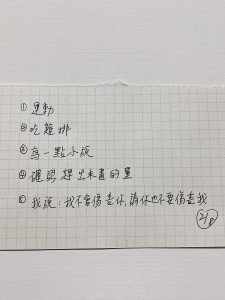 ①運動
②吃雞排
③寫一點小說
④確認超出來畫的量
⑤我說:我不會傷害你,請你也不要傷害我